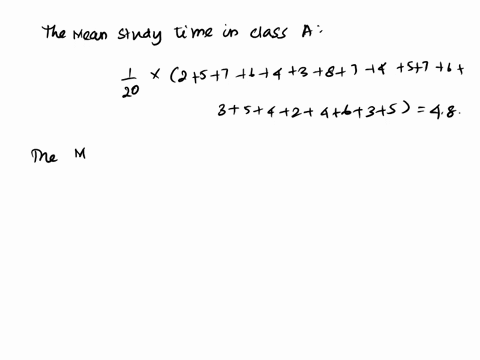 The Mean study time in class A:
1/20 × (2+5+7+6+4+3+8+7+4+5+7+6+
3+5+4+2+4+6+3+5) = 4.8.
The M